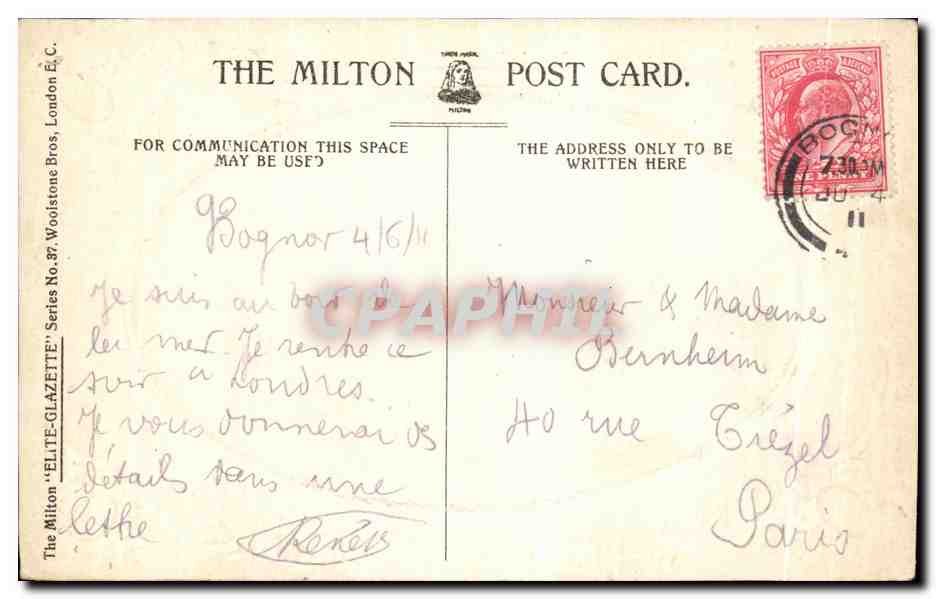 THE MILTON POST CARD.
TRADE MARK
MILTON
FOR COMMUNICATION THIS SPACE
MAY BE USED
THE ADDRESS ONLY TO BE
WRITTEN HERE
The Milton "ELITE-GLAZETTE" Series No. 37. Woolstone Bros, London E.C.
POSTAGE & REVENUE
ONE PENNY
BOGN
7.30 PM
JU 4
11
Bognor 4/6/11
Je suis au bord de
la mer. Je rentre ce
soir à Londres.
Je vous donnerai des
détails dans une
lettre
Monsieur & Madame
Bernheim
40 rue Trézel
Paris
CPAPHIL